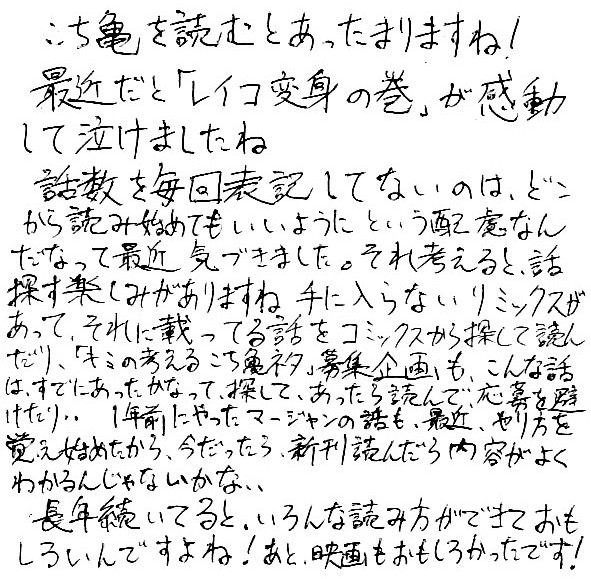 こち亀を読むとあったまりますね!
最近だと「レイコ変身の巻」が感動
して泣けましたね
話数を毎回表記してないのは、どこ
から読み始めてもいいようにという配慮なん
だなって最近気づきました。それ考えると、話
探す楽しみがありますね 手に入らないリミックスが
あって、それに載ってる話をコミックスから探して読ん
だり、「キミの考えるこち亀ネタ」募集企画も、こんな話
は、すでにあったかなって、探して、あったら読んで、応募を避
けたり‥ 1年前にやったマージャンの話も、最近、やり方を
覚え始めたから、今だったら、新刊読んだら内容がよく
わかるんじゃないかな、、
長年続いてると、いろんな読み方ができておも
しろいんですよね!あと、映画もおもしろかったです!